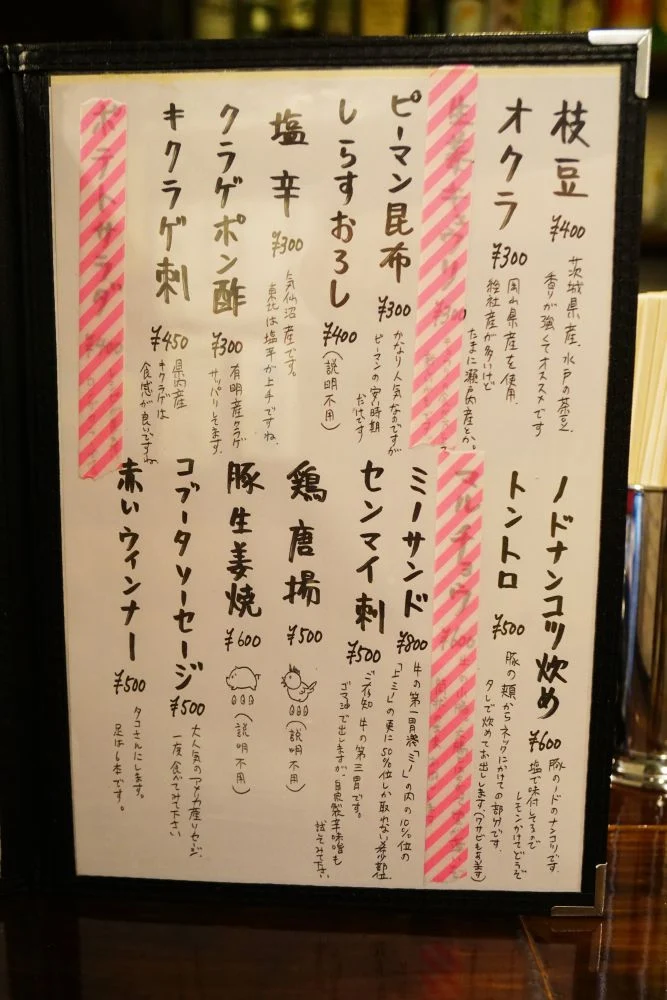 枝豆 ¥400
茨城県産、水戸の茶豆
香りが強くてオススメです
オクラ ¥300
岡山県産を使用。
総社産が多いけど
たまに瀬戸内産とか。
¥300
ピーマン昆布 ¥300
かなり人気なのですが
ピーマンの安い時期
だけです
しらすおろし ¥400
(説明不用)
塩辛 ¥300
気仙沼産です。
東北は塩辛が上手ですね
クラゲポン酢 ¥300
有明産クラゲ
サッパリしてます。
キクラゲ刺 ¥450
県内産
キクラゲは
食感が良いですね
ポテトサラダ ¥400
ノドナンコツ炒め ¥600
豚のノドのナンコツです
塩で味付してるので
レモンかけてどうぞ
トントロ ¥500
豚の頬からネックにかけての部分です。
タレで炒めてお出しします。(ワサビもあります)
マルチョウ ¥600
ミノサンド ¥800
牛の第一胃袋「ミノ」の内の10%位の
「上ミノ」の更に50%位しか取れない希少部位
センマイ刺 ¥500
ご存知 牛の第三胃です。
ゴマ油で出しますが、自家製辛味噌も
試してみて下さい
鶏唐揚 ¥500
(説明不用)
豚生姜焼 ¥600
(説明不用)
コブータソーセージ ¥500
大人気のアメリカ産ソーセージ。
一度食べてみて下さい
赤いウィンナー ¥500
タコさんにします。
足は6本です。